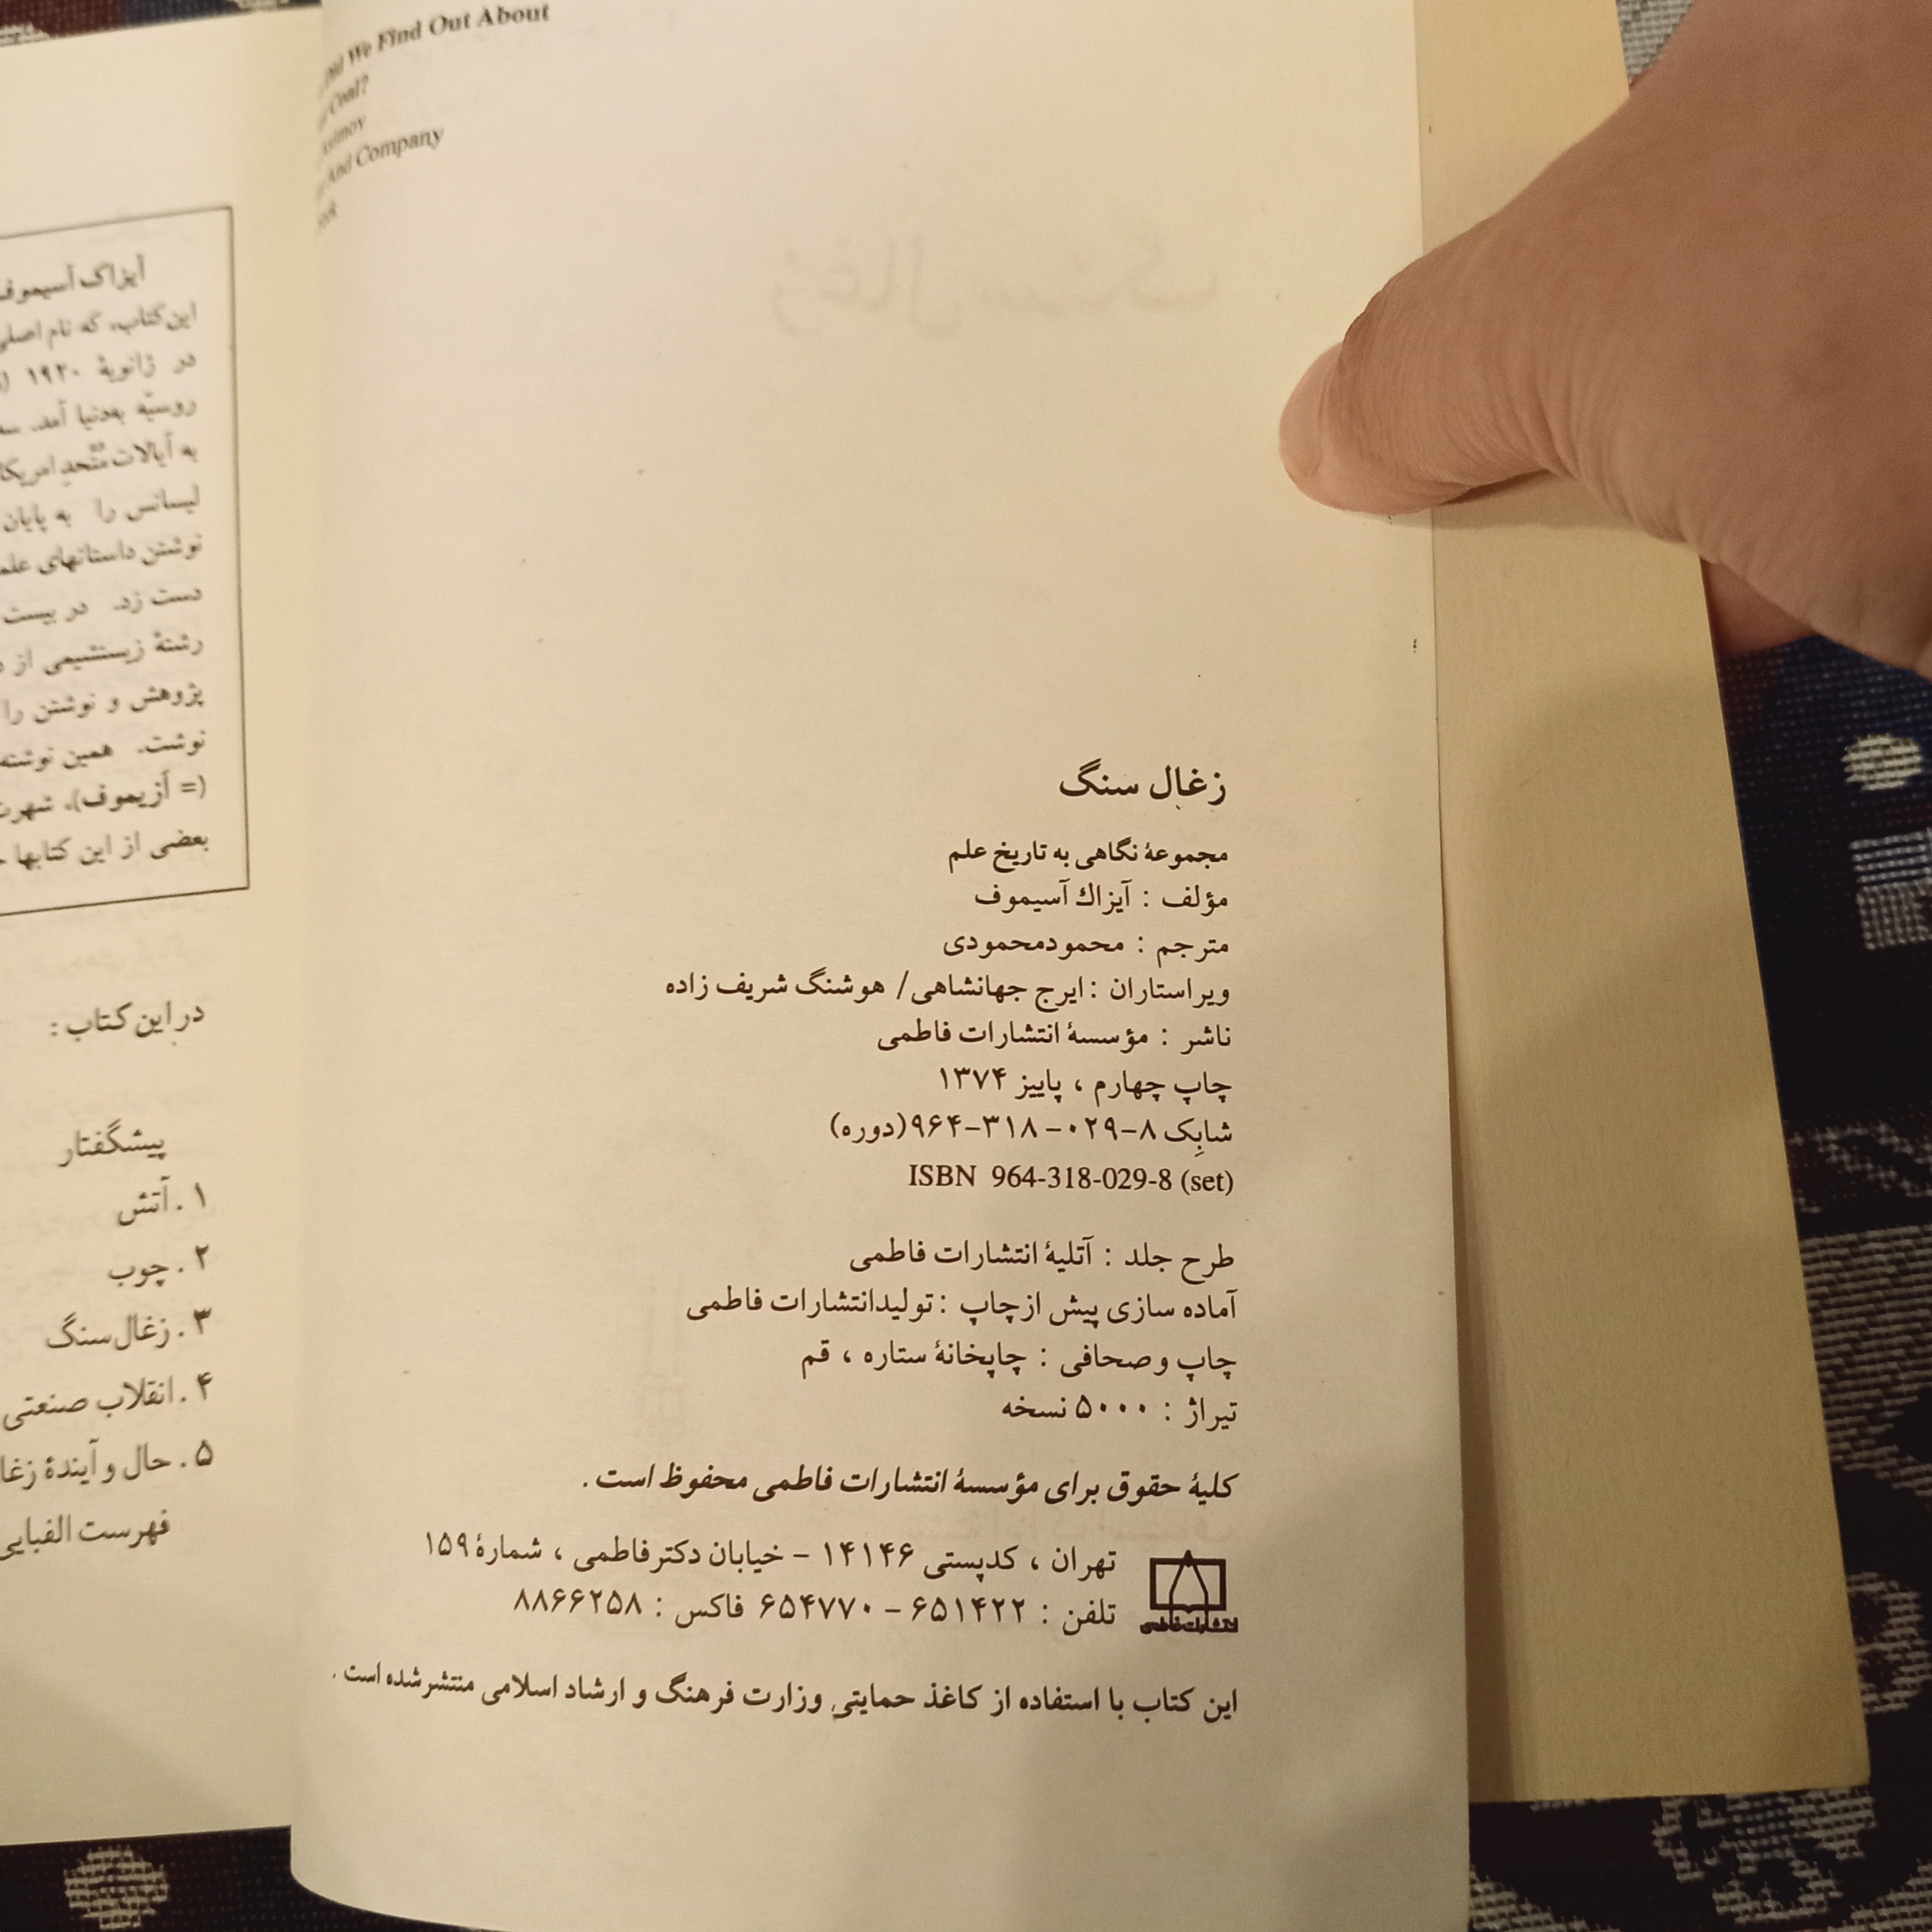 Did We Find Out About
Coal?
Asimov
And Company
زغال سنگ
مجموعهٔ نگاهی به تاریخ علم
مؤلف : آیزاك آسیموف
مترجم : محمودمحمودی
ویراستاران : ایرج جهانشاهی/ هوشنگ شریف زاده
ناشر : مؤسسهٔ انتشارات فاطمی
چاپ چهارم ، پاییز ۱۳۷۴
شابِک ۸-۰۲۹-۳۱۸-۹۶۴(دوره)
ISBN 964-318-029-8 (set)
طرح جلد : آتلیهٔ انتشارات فاطمی
آماده سازی پیش ازچاپ : تولیدانتشارات فاطمی
چاپ وصحافی : چاپخانهٔ ستاره ، قم
تیراژ : ۵۰۰۰ نسخه
کلیهٔ حقوق برای مؤسسهٔ انتشارات فاطمی محفوظ است .
تهران ، کدپستی ۱۴۱۴۶ – خیابان دکترفاطمی ، شمارهٔ ۱۵۹
تلفن : ۶۵۱۴۲۲ – ۶۵۴۷۷۰ فاکس : ۸۸۶۶۲۵۸
انتشارات فاطمی
این کتاب با استفاده از کاغذ حمایتیِ وزارت فرهنگ و ارشاد اسلامی منتشرشده است .
آیزاک آسیموف
این کتاب، که نام اصلی
در ژانویهٔ ۱۹۲۰
روسیّه به‌دنیا آمد.
به ایالات متّحدِ امریکا
لیسانس را به پایان
نوشتن داستانهای
دست زد. در بیست
رشتهٔ زیستشیمی از
پژوهش و نوشتن را
نوشت. همین نوشته
(= اَزیموف)، شهرت
بعضی از این کتابها
در این کتاب :
پیشگفتار
۱ . آتش
۲ . چوب
۳ . زغال‌سنگ
۴ . انقلاب صنعتی
۵ . حال و آیندهٔ
فهرست الفبایی